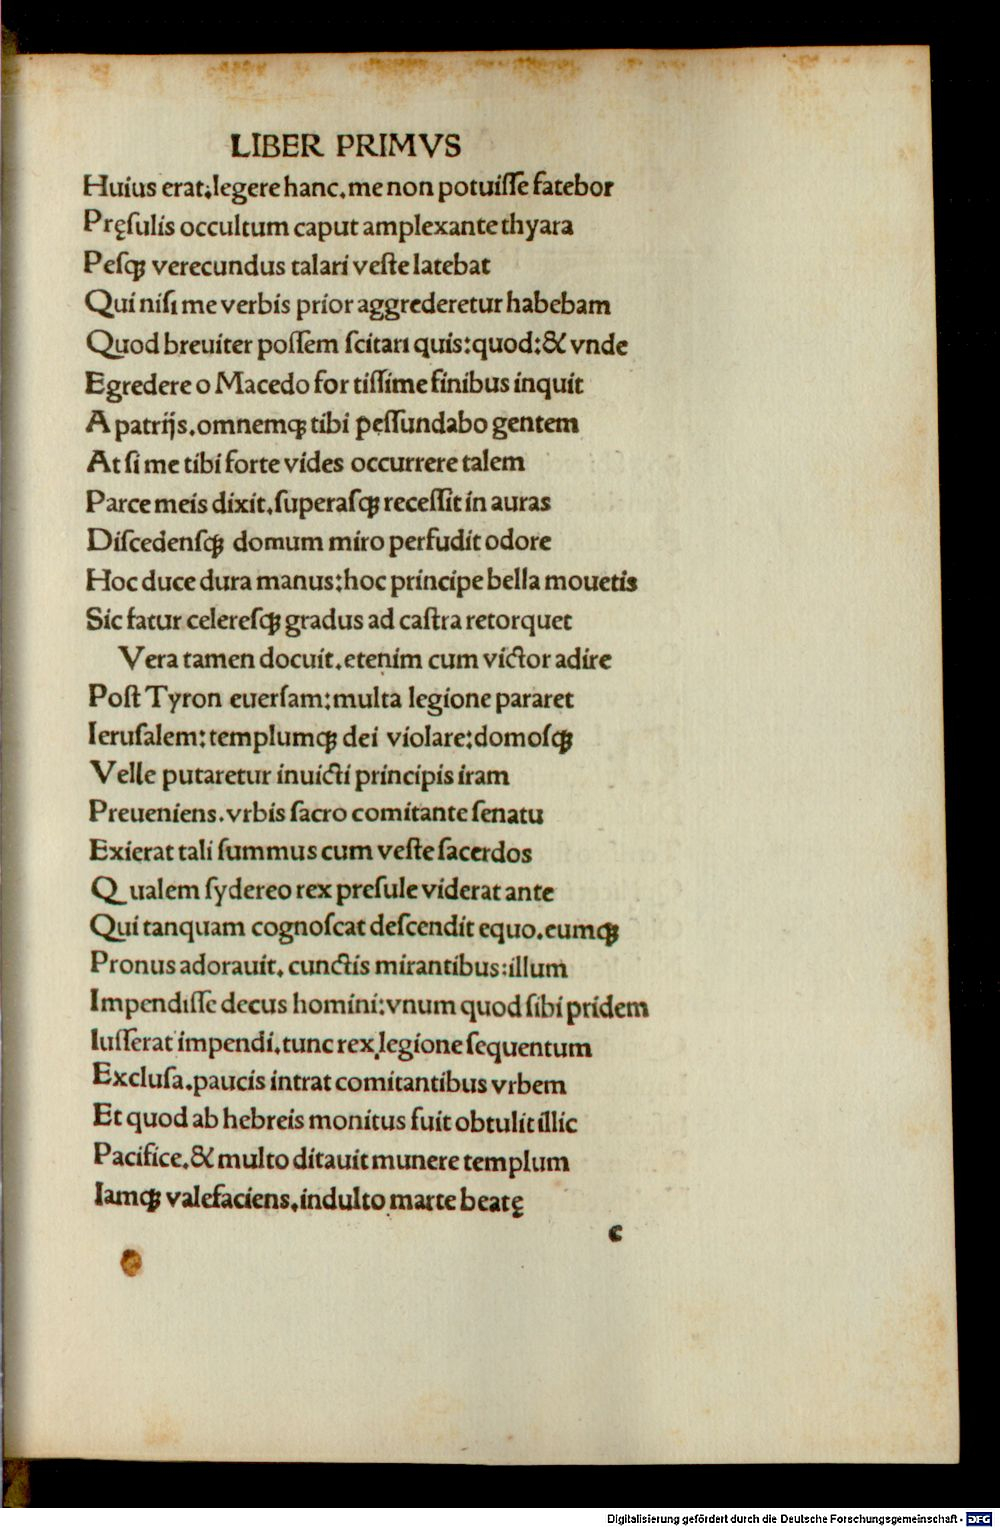 LIBER PRIMVS
Huius erat;legere hanc.me non potuiſſe fatebor
Pręſulis occultum caput amplexante thyara
Peſqꝫ verecundus talari veſte latebat
Qui niſi me verbis prior aggrederetur habebam
Quod breuiter poſſem ſcitari quis:quod:& vnde
Egredere o Macedo for tiſſime finibus inquit
A patrijs.omnemqꝫ tibi peſſundabo gentem
At ſi me tibi forte vides occurrere talem
Parce meis dixit.ſuperaſqꝫ receſſit in auras
Diſcedenſqꝫ domum miro perfudit odore
Hoc duce dura manus:hoc principe bella mouetis
Sic fatur celereſqꝫ gradus ad caſtra retorquet
Vera tamen docuit.etenim cum victor adire
Poſt Tyron euerſam:multa legione pararet
Ieruſalem:templumqꝫ dei violare:domoſqꝫ
Velle putaretur inuicti principis iram
Preueniens.vrbis ſacro comitante ſenatu
Exierat tali ſummus cum veſte ſacerdos
Qualem ſydereo rex preſule viderat ante
Qui tanquam cognoſcat deſcendit equo.eumqꝫ
Pronus adorauit. cunctis mirantibus:illum
Impendiſſe decus homini:vnum quod ſibi pridem
Iuſſerat impendi.tunc rex,legione ſequentum
Excluſa.paucis intrat comitantibus vrbem
Et quod ab hebreis monitus fuit obtulit illic
Pacifice.& multo ditauit munere templum
Iamqꝫ valefaciens.indulto marte beatę
c
Digitalisierung gefördert durch die Deutsche Forschungsgemeinschaft - DFG